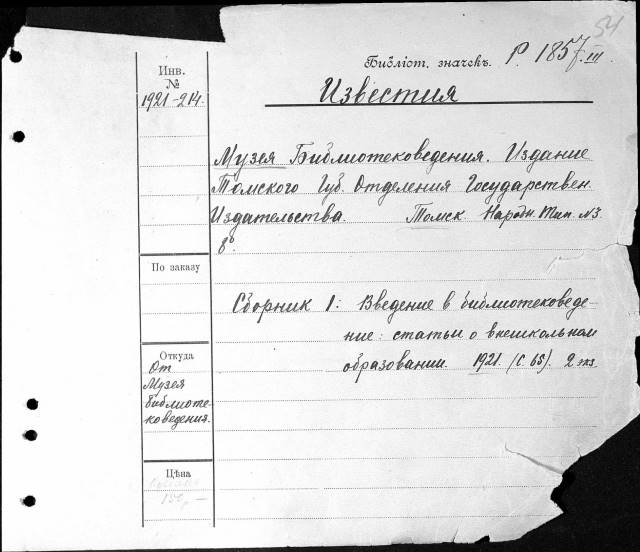 54
Библіот. значекъ. Р. 1857.III
Инв.
№
1921-214.
Известия
Музея Библиотековедения. Издание
Томского Губ. Отделения Государствен.
Издательства. Томск. Народн. Тип. №3.
8°.
Сборник I: Введение в библиотековеде-
ние: статьи о внешкольном
образовании. 1921. (С. 65). 2 экз.
По заказу
Откуда
От
Музея
библиоте-
коведения.
Цѣна
150,—